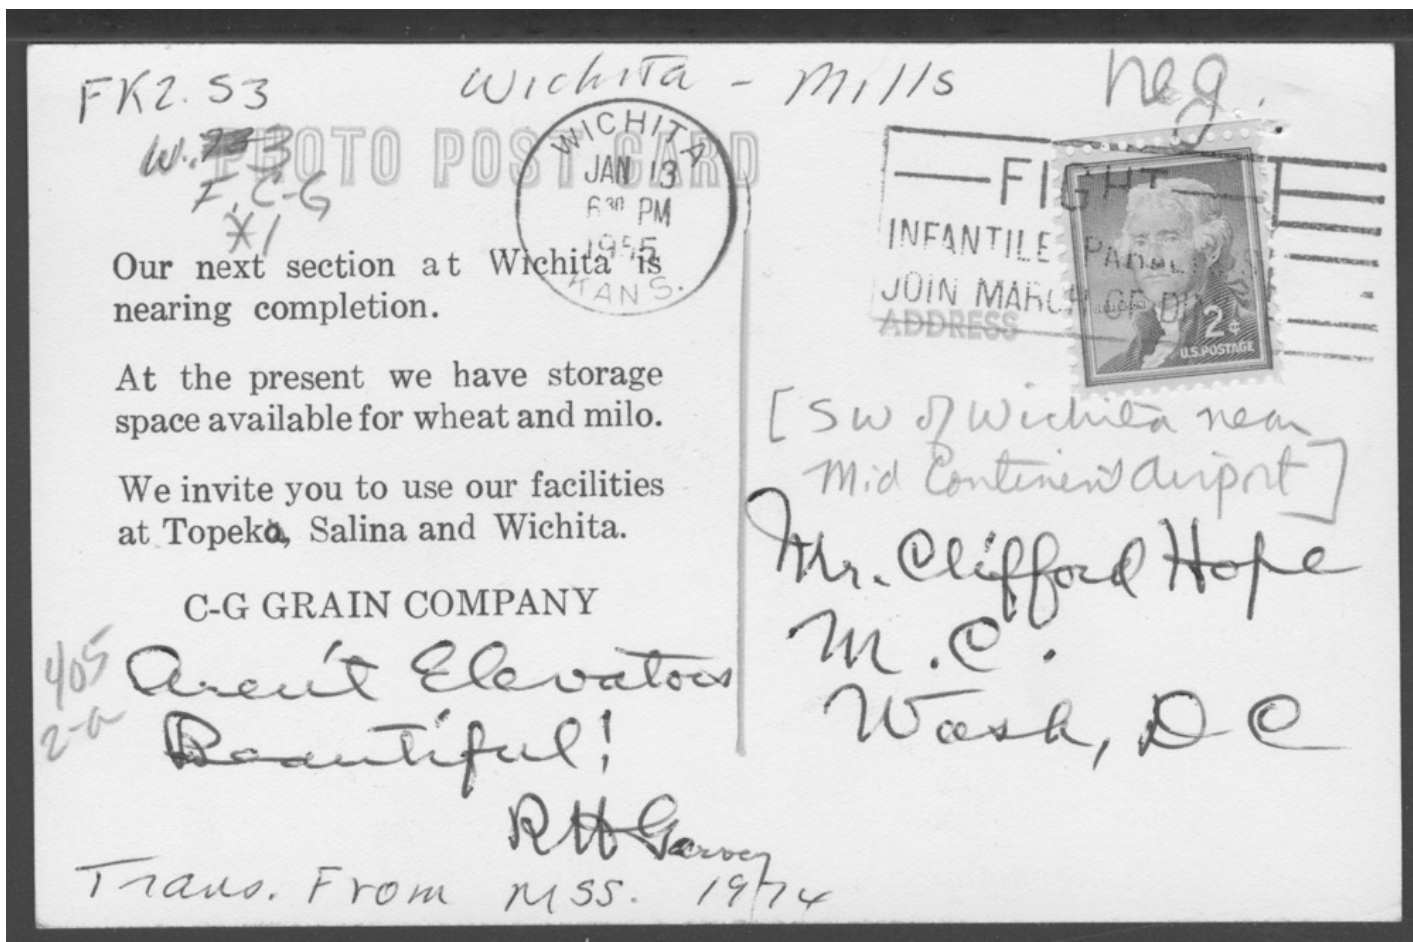 FK2. S3
Wichita - Mills
neg.
W. 3
F, C-G
*1
PHOTO POST CARD
WICHITA
JAN 13
6 30 PM
1955
KANS.
FIGHT
INFANTILE PARAL
JOIN MARCH OF DI
ADDRESS
2¢
U.S. POSTAGE
Our next section at Wichita is
nearing completion.
At the present we have storage
space available for wheat and milo.
We invite you to use our facilities
at Topeka, Salina and Wichita.
C-G GRAIN COMPANY
405
2-a
Aren't Elevators
Beautiful!
R H Garvey
Trans. From MSS. 1974
[SW of Wichita near
Mid Continent airport]
Mr. Clifford Hope
M. C.
Wash, D C